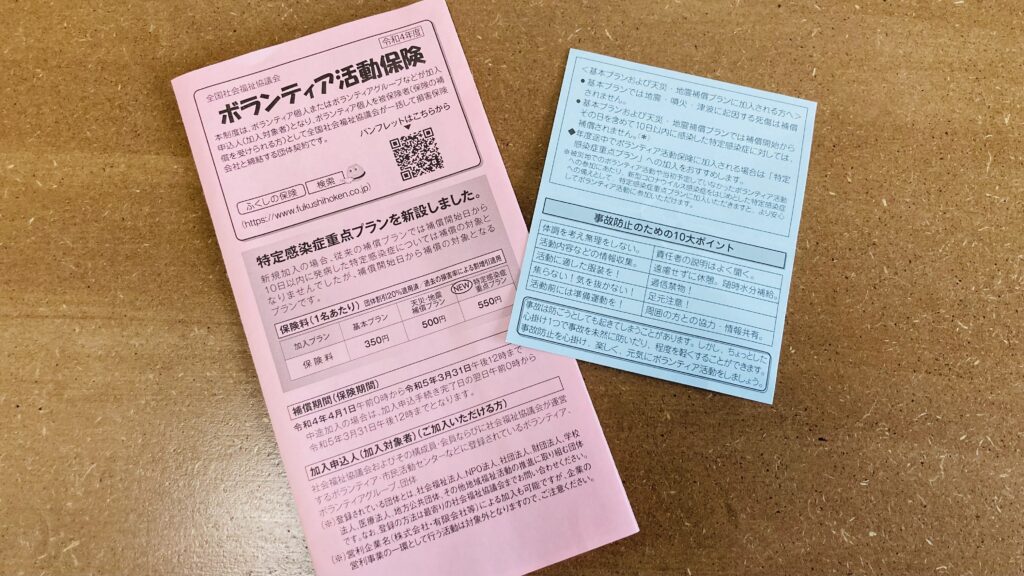 令和4年度
全国社会福祉協議会
ボランティア活動保険
本制度は、ボランティア個人またはボランティアグループなどが加入
申込人(加入対象者)となり、ボランティア個人を被保険者(保険の補
償を受けられる方)として全国社会福祉協議会が一括して損害保険
会社と締結する団体契約です。
パンフレットはこちらから
ふくしの保険 検索
(https://www.fukushihoken.co.jp)
特定感染症重点プランを新設しました。
新規加入の場合、従来の補償プランでは補償開始日から
10日以内に発病した特定感染症については補償の対象と
なりませんでしたが、補償開始日から補償の対象となる
プランです。
保険料(1名あたり) 団体割引20%適用済 過去の損害率による割増引適用
加入プラン 基本プラン 天災・地震補償プラン NEW 特定感染症重点プラン
保険料 350円 500円 550円
補償期間(保険期間)
令和4年4月1日午前0時から令和5年3月31日午後12時まで
中途加入の場合は、加入申込手続き完了日の翌日午前0時から
令和5年3月31日午後12時までとなります。
加入申込人(加入対象者)(ご加入いただける方)
社会福祉協議会およびその構成員・会員ならびに社会福祉協議会が運営
するボランティア・市民活動センターなどに登録されているボランティア、
ボランティアグループ、団体
(※)登録されている団体とは、社会福祉法人、NPO法人、社団法人、財団法人、学校
法人、医療法人、地方公共団体、その他地域福祉活動の推進に取り組む団体
です。なお、登録の方法は最寄りの社会福祉協議会までお問い合わせください。
(※)営利企業名(株式会社・有限会社等)による加入も可能ですが、企業の
営利事業の一環として行う活動は対象外となりますので、ご注意ください。
<基本プランおよび天災・地震補償プランに加入される方へ>
●基本プランでは地震・噴火・津波に起因する死傷は補償
されません。
●基本プランおよび天災・地震補償プランでは補償開始から
その日を含めて10日以内に感染した特定感染症に対しては、
補償されません。※
◆年度途中でボランティア活動保険に加入される場合は「特定
感染症重点プラン」への加入をおすすめします。
事故防止のための10大ポイント
体調を考え無理をしない。 責任者の説明はよく聞く。
活動内容などの情報収集。 遠慮せずに休憩。随時水分補給。
活動に適した服装を! 過信禁物!
焦らない!気を抜かない! 足元注意!
活動前には準備運動を! 周囲の方との協力・情報共有。
事故は防ごうとしても起きてしまうことがあります。しかし、ちょっとした
心掛け1つで事故を未然に防いだり、程度を軽くすることができます。
事故防止を心掛け、楽しく、元気にボランティア活動をしましょう。